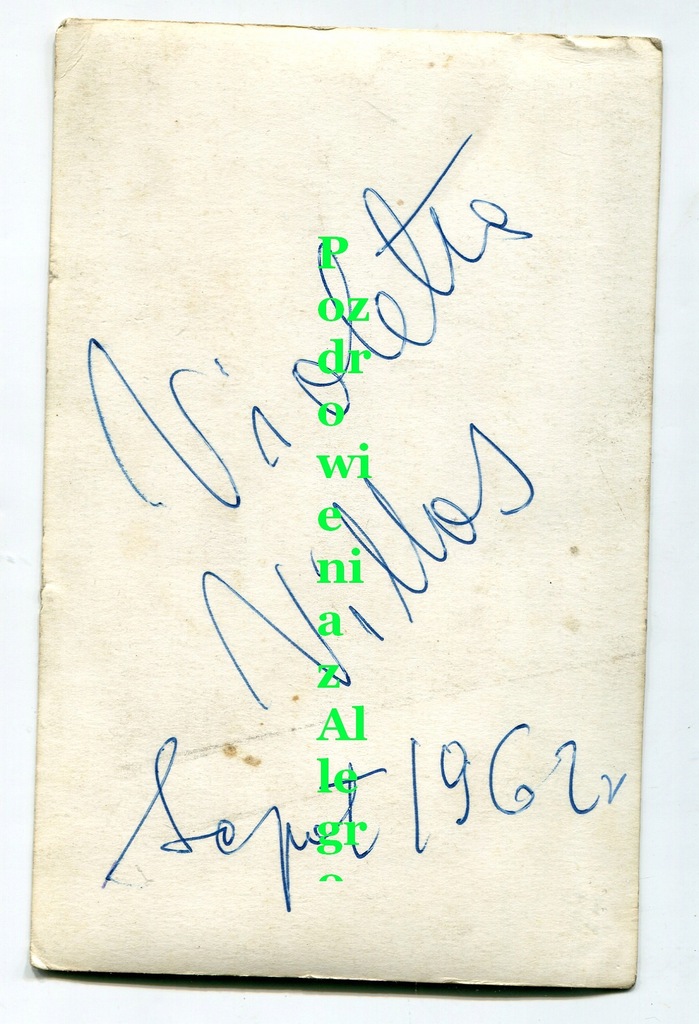 Violetta
Villas
Sept 1962 r
P
oz
dr
o
wi
e
ni
a
z
Al
le
gr
o